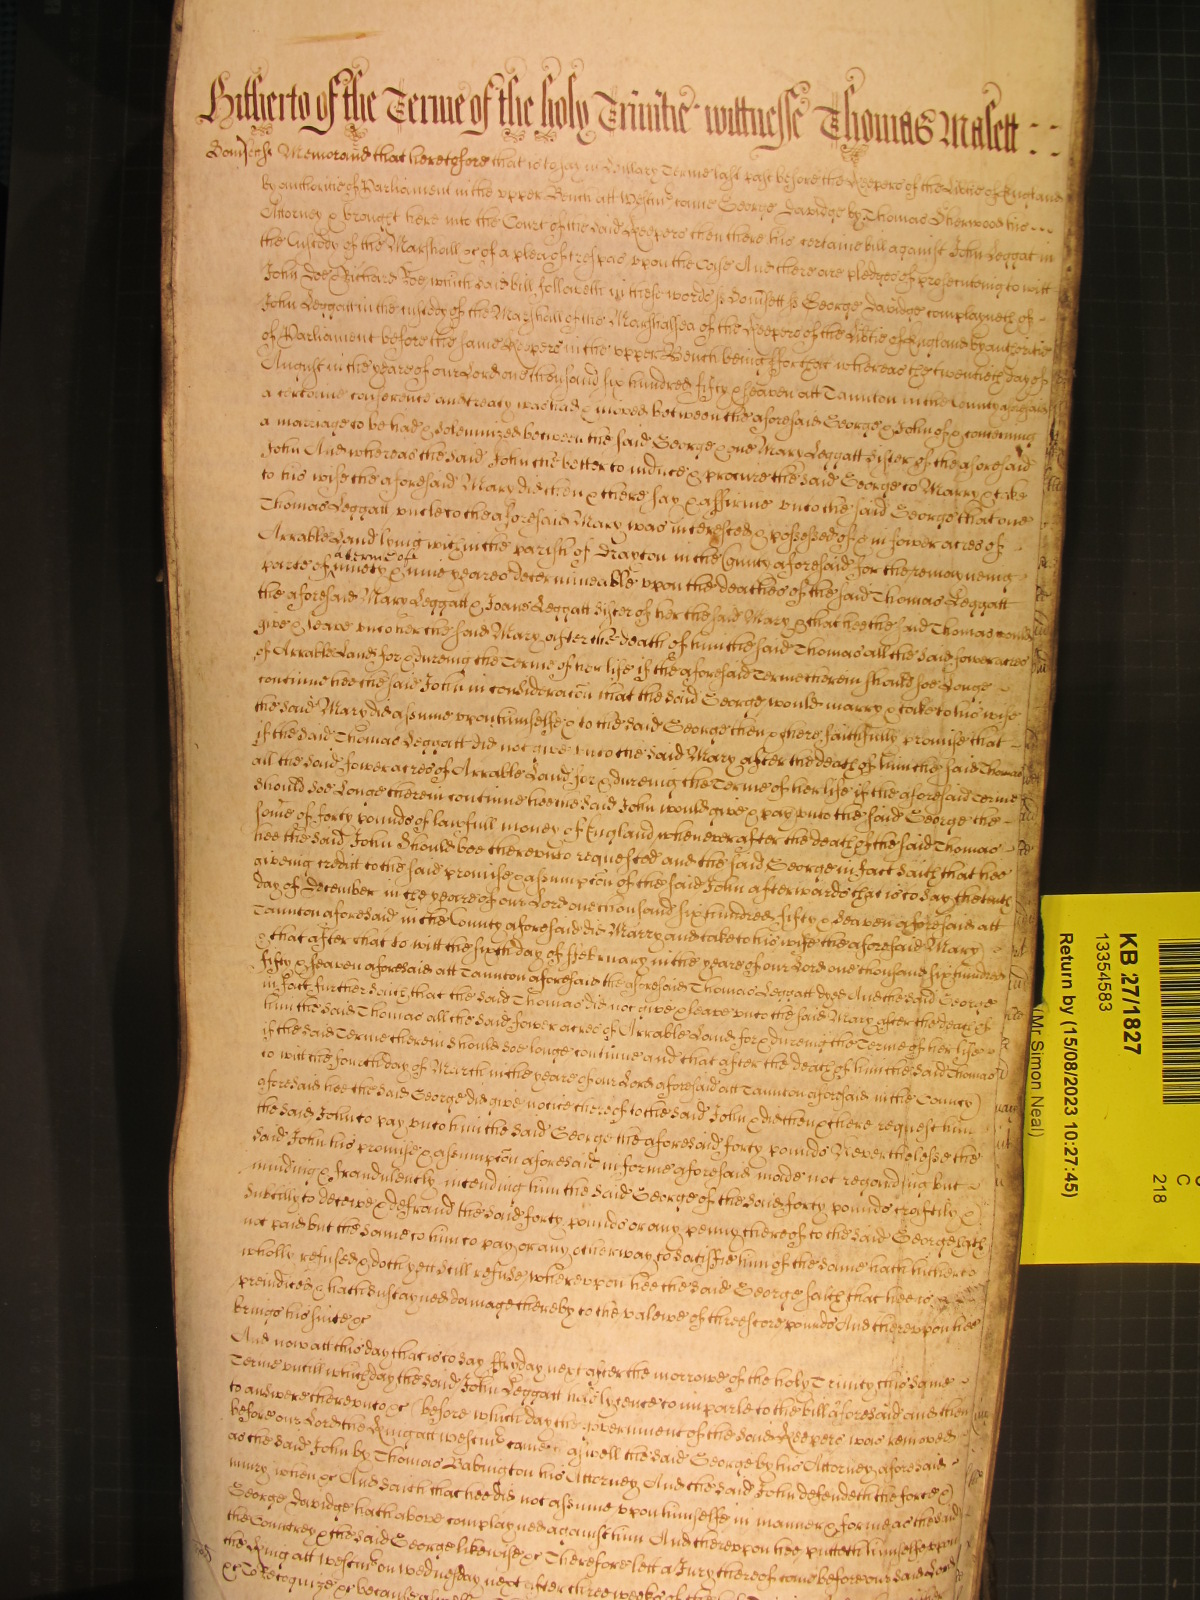 Hitherto of the Terme of the holy Trinitie wittnesse Thomas Malett
Somersett Memorand that heretofore that is to say in Hillary Terme last past before the Keepers of the Libtie of England
by authoritie of Parliament in the vpper Bench att Westmr came George Davidge by Thomas Sherwood his
Attorney & brought here into the Court of the said Keepers then there his certaine bill against John Leggat in
the Custody of the Marshall &c of a plea of trespas vpon the Case And there are pledges of prosecuteing to witt
John Doe & Richard Roe which said bill followeth in these words ss Somsett ss George Davidge complayneth of
John Leggatt in the custody of the Marshall of the Marshalsea of the Keepers of the Libtie of England by authoritie
of Parliament before the same Keepers in the vpper Bench being ffor that whereas the twentieth day of
August in the yeare of our Lord one thousand six hundred fifty & seaven att Taunton in the County aforesaid
a certaine conference and treaty was had & moved betweene the aforesaid George & John of & concerning
a marriage to be had & solemnized betweene the said George & one Mary Leggatt sister of the aforesaid
John And whereas the said John the better to induce & procure the said George to Marry & take
to his wife the aforesaid Mary did then & there say & affirme vnto the said George that one
Thomas Leggatt vncle to the aforesaid Mary was interested & possessed of & in fower acres of
Arrable Land lying within the parish of Drayton in the County aforesaid for the remayneing
parte of a terme of ninety & nine yeares determineable vpon the deathes of the said Thomas Leggatt
the aforesaid Mary Leggatt & Joane Leggatt sister of her the said Mary & that hee the said Thomas would
give & leave vnto her the said Mary after the death of him the said Thomas all the said fower acres
of Arrable Land for & dureing the Terme of her life if the aforesaid Terme therein should soe longe
continue hee the said John in consideracon that the said George would marry & take to his wife
the said Mary did assume vpon himselfe & to the said George then & there faithfully promise that
if the said Thomas Leggatt did not give vnto the said Mary after the death of him the said Thomas
all the said fower acres of Arrable Land for & dureing the Terme of her life if the aforesaid Terme
should soe longe therein continue hee the said John would give & pay vnto the said George the
some of forty pounds of lawfull money of England whenever after the death of the said Thomas
hee the said John should bee therevnto requested and the said George in fact saith that hee
giveing credit to the said promise & assumpcon of the said John afterwards that is to say the tenth
day of December in the yeare of our Lord one thousand six hundred fifty & seaven aforesaid att
Taunton aforesaid in the County aforesaid did Marry and take to his wife the aforesaid Mary
& that after that to witt the sixth day of ffebruary in the yeare of our Lord one thousand six hundred
fifty & seaven aforesaid att Taunton aforesaid the aforesaid Thomas Leggatt dyed And the said George
in fact further saith that the said Thomas did not give & leave vnto the said Mary after the death of
him the said Thomas all the said fower acres of Arrable Land for & dureing the Terme of her life
if the said Terme therein should soe longe continue and that after the death of him the said Thomas
to witt the fourth day of March in the yeare of our Lord aforesaid att Taunton aforesaid in the County
aforesaid hee the said George did give notice thereof to the said John & did then & there request him
the said John to pay vnto him the said George the aforesaid forty pounds Neverthelesse the
said John his promise & assumpcon aforesaid in forme aforesaid made not regarding but
minding & fraudulently intending him the said George of the said forty pounds craftily &
subtilly to deceive & defraud the said forty pounds or any penny thereof to the said George hath
not paid but the same to him to pay or any other way to satisfie him of the same hath hitherto
wholly refused & doth yett still refuse wherevpon hee the said George saith that hee is
preiudiced & hath sustayned damage thereby to the valewe of threescore pounds And therevpon hee
brings his suite &c
And now att this day that is to say ffryday next after the morrowe of the holy Trinity this same
Terme vntill which day the said John Leggatt had lycence to imparle to the bill aforesaid and then
to answere therevnto &c before which day the government of the said Keepers was removed
before our Lord the King att Westmr came aswell the said George by his Attorney aforesaid
as the said John by Thomas Babington his Attorney And the said John defendeth the force &
iniury when &c And saith that hee did not assume vpon himselfe in manner & forme as the said
George Davidge hath above complayned against him And therevpon hee putteth himselfe vpon
the Countrey & the said George likewise &c Therefore lett a Jury thereof come before our said Lord
the King att Westmr on Wednesday next after three weeks of the
&c To Recognize &c because
KB 27/1827
13354583
Return by (15/08/2023 10:27:45)
(Mr Simon Neal)
C
218